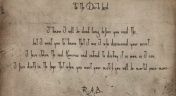 To the Dark Lord
I know I will be dead long before you read this
but I want you to know that it was I who discovered your secret.
I have stolen the real Horcrux and intend to destroy it as soon as I can.
I face death in the hope that when you meet your match you will be mortal once more.
R.A.B.